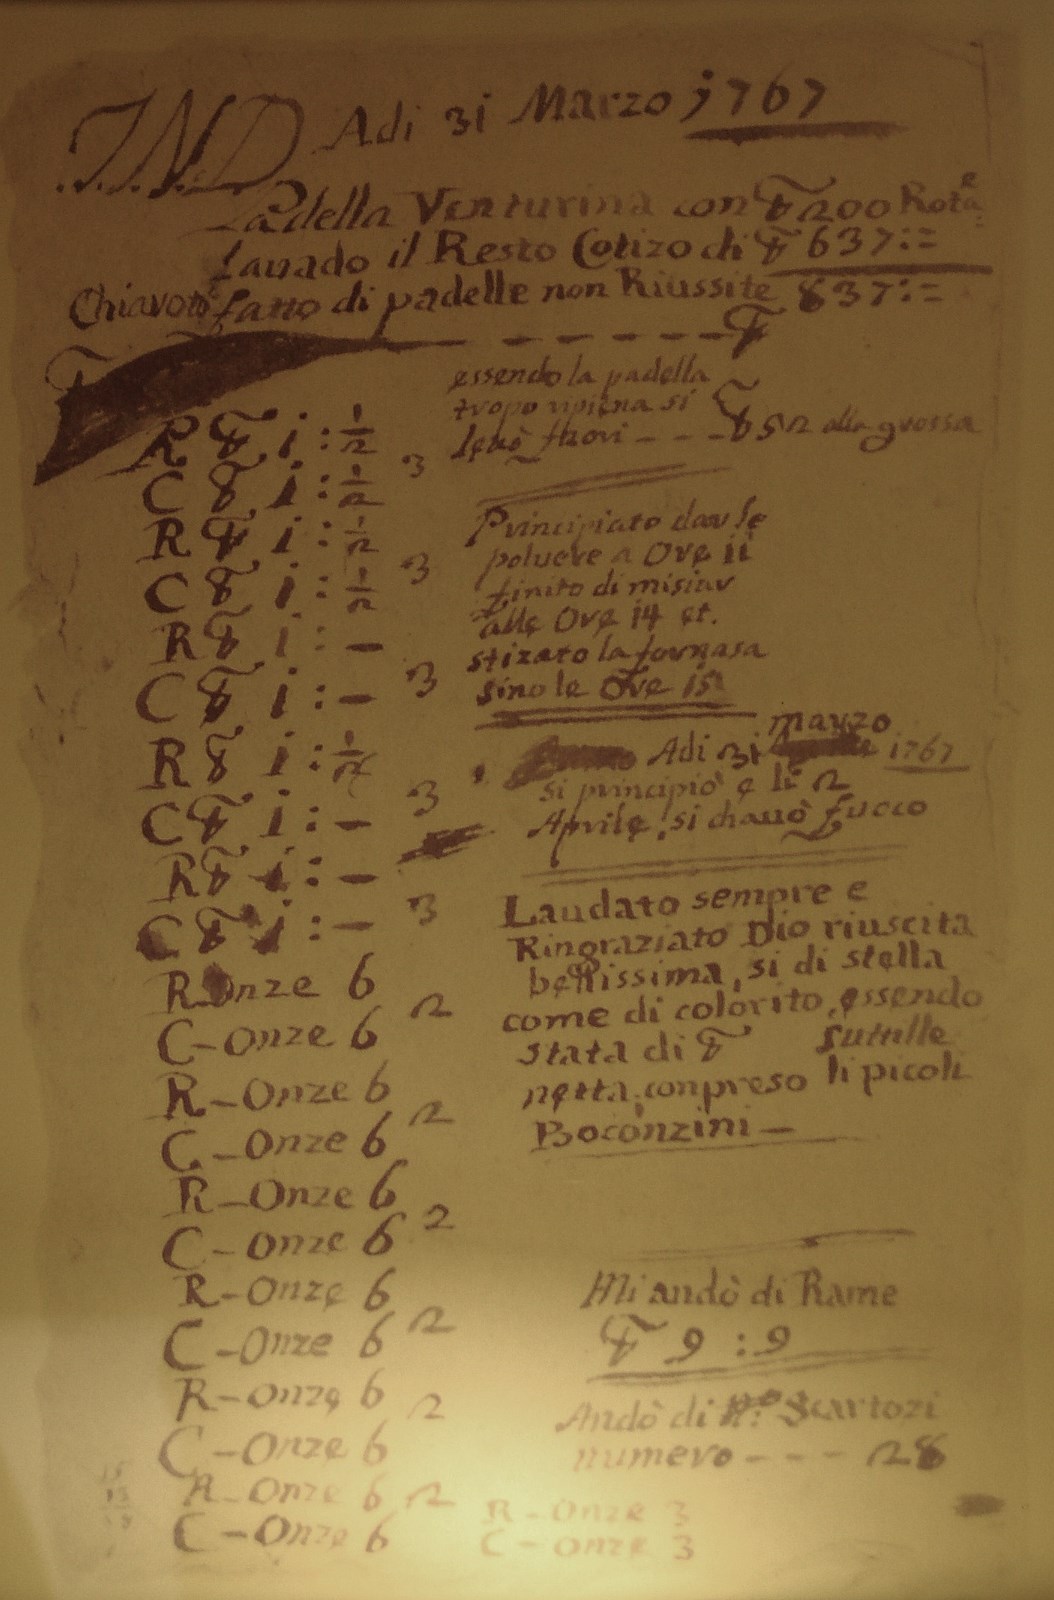 I.N.D. Adi 31 Marzo 1767
Padella Venturina con ₶ 200 Rota
lavado il Resto Cotizo di ₶ 637:=
fatto di padelle non Riussite 837:=
- - - - - - ₶
essendo la padella
tropo ripiena si
levò fuori - - - ₶ 52 alla grossa
R ₶ 1:½
C ₶ 1:½ 3
R ₶ 1:½
C ₶ 1:½ 3
R ₶ 1:-
C ₶ 1:- 3
R ₶ 1:½
C ₶ 1:- 3
R ₶ 1:-
C ₶ 1:- 3
R Onze 6
C-Onze 6 2
R-Onze 6
C-Onze 6 2
R-Onze 6
C-Onze 6 2
R-Onze 6
C-Onze 6 2
R-Onze 6
C-Onze 6 2
R-Onze 6 2
C-Onze 6
R-Onze 3
C-onze 3
Principiato dar le
polvere a Ore 11
finito di misiar
alle Ore 14 et.
stizato la fornasa
sino le Ore 15
Adi 31 marzo 1767
si principiò e li 2
Aprile, si chavò fuoco
Laudato sempre e
Ringraziato Dio riuscita
bellissima, si di stella
come di colorito, essendo
stata di ₶ suttille
netta, conpreso li picoli
Boconzini -
Mi andò di Rame
₶ 9:9
Andò di Scartozi
numero - - - 28